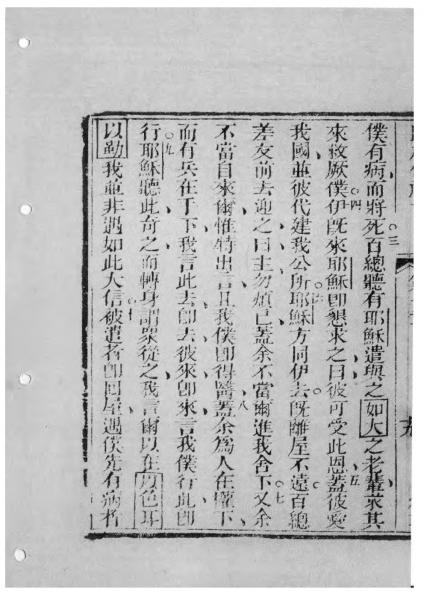 僕有病而將死三百總聽有耶穌遣與之如大之老輩求其
來救厥僕四伊旣來耶穌卽懇求之曰彼可受此恩五蓋彼愛
我國並彼代建我公所六耶穌方同伊去旣離屋不遠百總
差友前去迎之曰主勿煩已蓋余不當爾進我舍下七又余
不當自來爾惟特出言且我僕卽得醫八蓋余為人在權下
而有兵在手下我言此去卽去彼來卽來言我僕行此卽
行九耶穌聽此奇之而轉身謂眾從之我言爾以在以色耳
以勒我並非遇如此大信十被遣者卽回屋遇僕先有病者